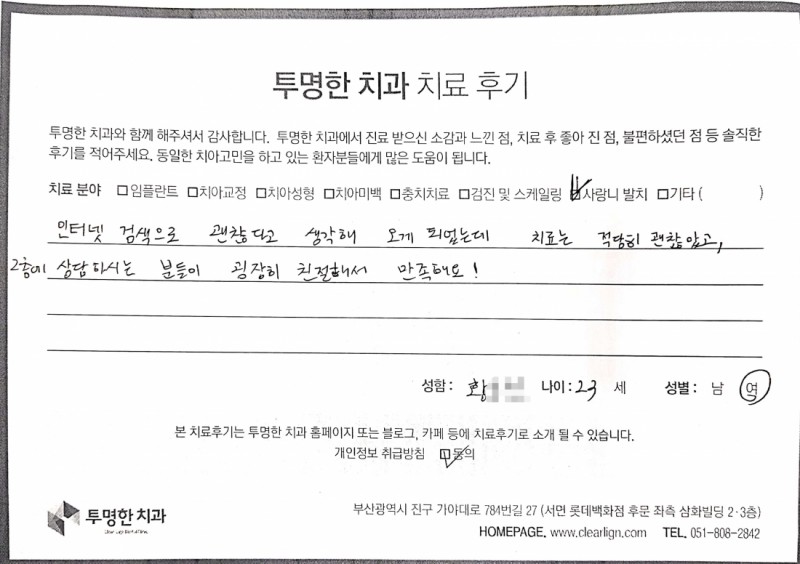 투명한 치과 치료 후기
투명한 치과와 함께 해주셔서 감사합니다. 투명한 치과에서 진료 받으신 소감과 느낀 점, 치료 후 좋아 진 점, 불편하셨던 점 등 솔직한
후기를 적어주세요. 동일한 치아고민을 하고 있는 환자분들에게 많은 도움이 됩니다.
치료 분야 □임플란트 □치아교정 □치아성형 □치아미백 □충치치료 □검진 및 스케일링 ☑사랑니 발치 □기타 ( )
인터넷 검색으로 괜찮다고 생각해 오게 되었는데 치료는 적당히 괜찮았고,
2층에 상담하시는 분들이 굉장히 친절해서 만족해요!
성함 : 황 나이 : 23 세 성별 : 남 여
본 치료후기는 투명한 치과 홈페이지 또는 블로그, 카페 등에 치료후기로 소개 될 수 있습니다.
개인정보 취급방침 ☑동의
투명한 치과
부산광역시 진구 가야대로 784번길 27 (서면 롯데백화점 후문 좌측 삼화빌딩 2·3층)
HOMEPAGE. www.clearlign.com TEL. 051-808-2842